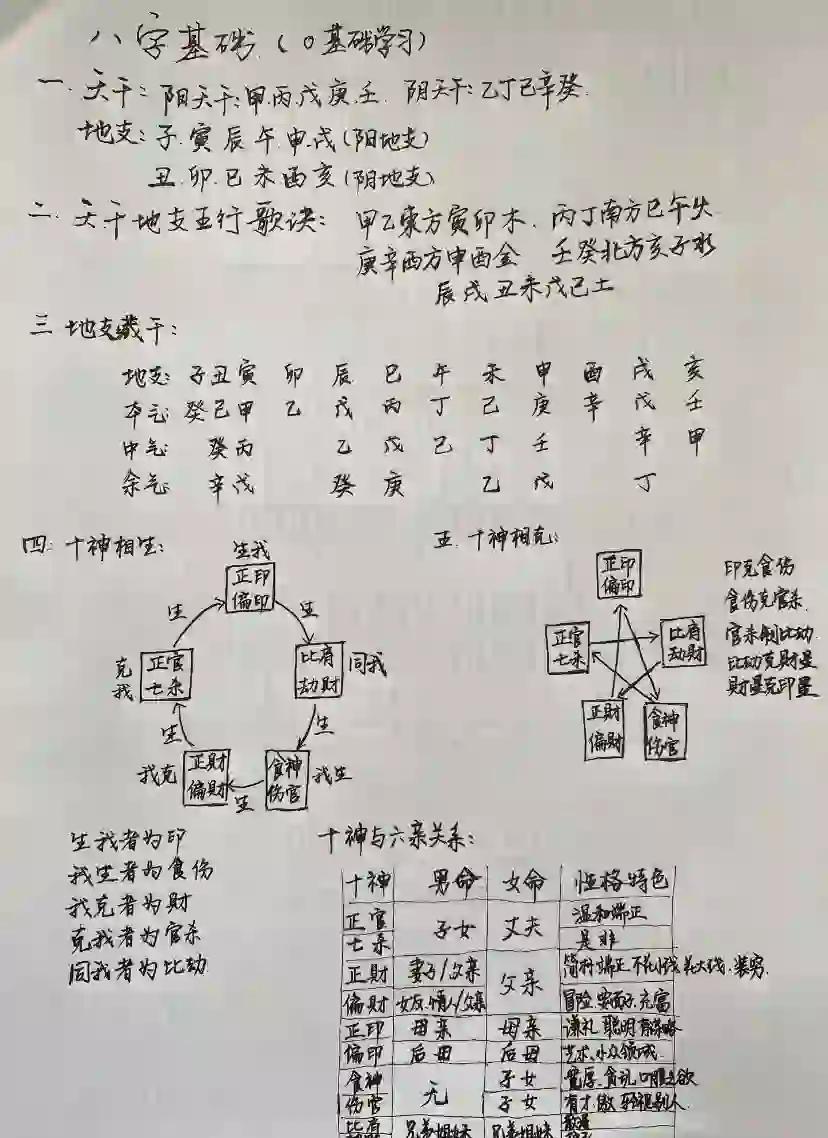 八字基础（0基础学习）
一.天干：阳天干：甲.丙.戊庚.壬 阴天干：乙丁己辛癸
地支：子.寅辰午申.戌（阳地支）
丑.卯.巳未酉亥（阴地支）
二.天干地支五行歌诀：甲乙东方寅卯木.丙丁南方巳午火
庚辛西方申酉金 壬癸北方亥子水
辰戌丑未戊己土
三 地支藏干：
地支：子丑寅 卯 辰 巳 午 未 申 酉 戌 亥
本气：癸己甲 乙 戊 丙 丁 己 庚 辛 戊 壬
中气：癸丙 乙 戊 己 丁 壬 辛 甲
余气：辛戊 癸 庚 乙 戊 丁
四.十神相生：
生我
正印
偏印
生
生
克我
正官
七杀
比肩
劫财
同我
生
生
我克
正财
偏财
食神
伤官
我生
生
五.十神相克：
正印
偏印
正官
七杀
比肩
劫财
正财
偏财
食神
伤官
印克食伤
食伤克官杀.
官杀制比劫
比劫克财星
财星克印星
生我者为印
我生者为食伤
我克者为财
克我者为官杀
同我者为比劫
十神与六亲关系：
十神 男命 女命 性格特色
正官 子女 丈夫 温和端正
七杀 是非
正财 妻子/父亲 父亲 端正.不花小钱花大钱.装穷.
偏财 女友.情人/父亲 冒险.要面子.充富
正印 母亲 母亲 谦礼.聪明.有谋略
偏印 后母 后母 艺术.小众领域.
食神 无 子女 宽厚.贪玩.口腹之欲
伤官 子女 有才.傲.轻视别人.
比肩 兄弟姐妹 兄弟姐妹